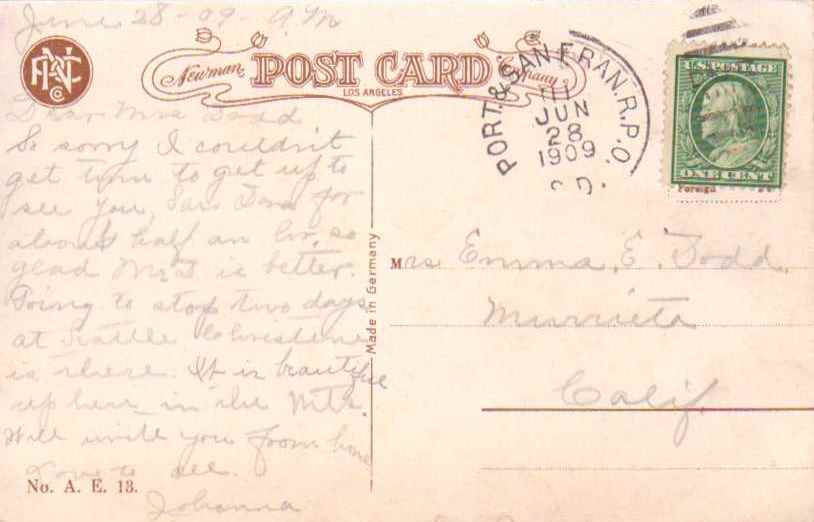 June 28-09- A.M
PNC
Co
Newman POST CARD Company
LOS ANGELES
PORT. & SAN FRAN. R.P.O.
III
JUN
28
1909
R.D.
U.S. POSTAGE
ONE CENT
Foreign
Dear Mrs Todd
So sorry I couldn't
get time to get up to
see you, Saw for
about half an hr, so
glad Mr T is better.
Going to stop two days
at Seattle Christene
is there. It is beautiful
up here in the Mts.
Will write you from home
Love to all.
Johanna
No. A. E. 13.
Made in Germany
Mrs Emma E. Todd,
Murrieta
Calif.